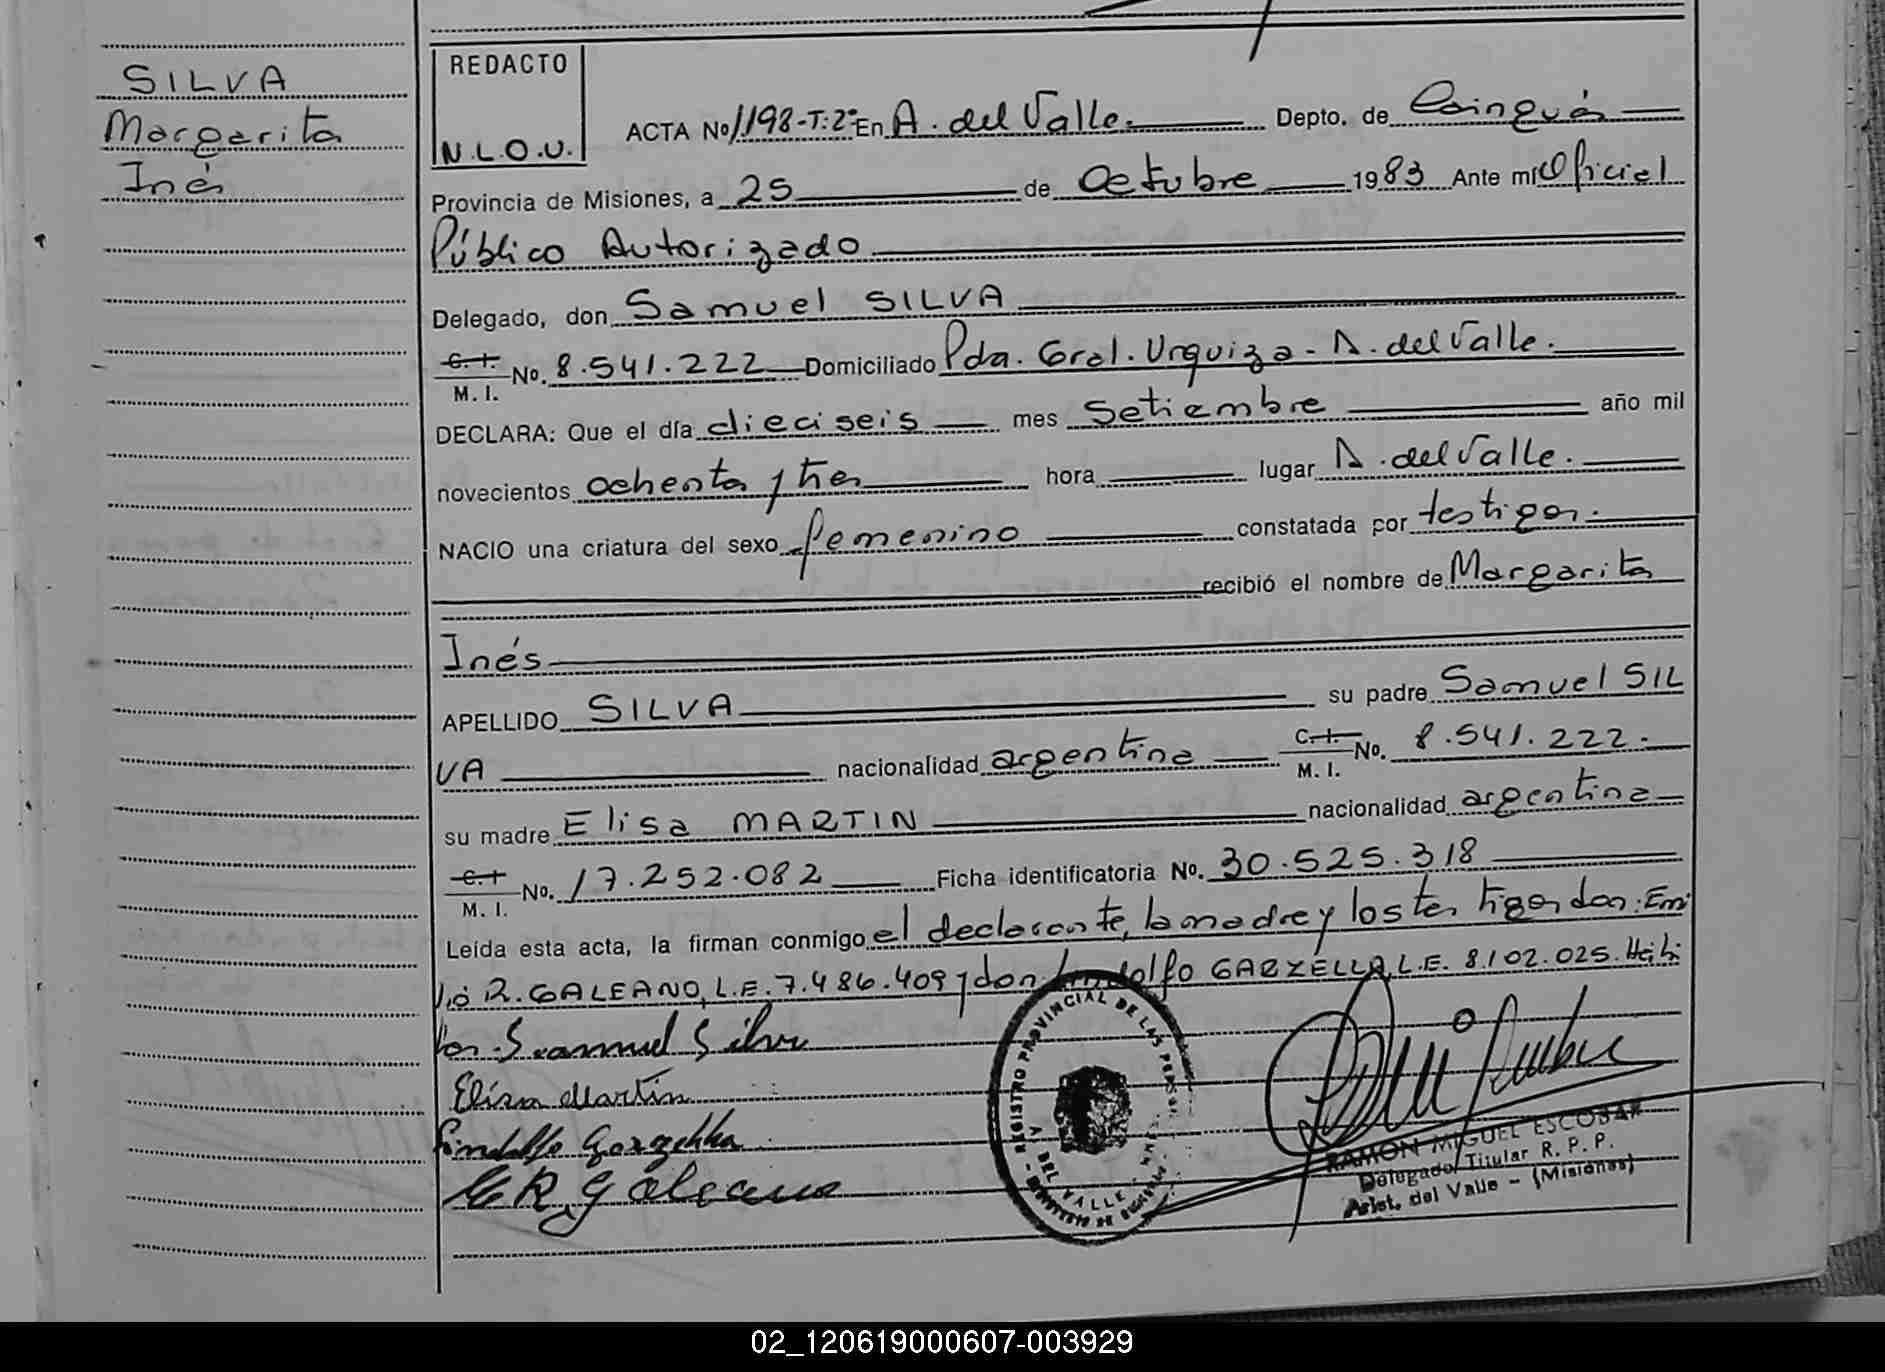 SILVA
Margarita
Inés
REDACTO
N.L.O.U.
ACTA No 1198-T:2º En A. del Valle. Depto. de Cainguás
Provincia de Misiones, a 25 de Octubre 1983 Ante mí Oficial
Público Autorizado
Delegado, don Samuel SILVA
C. I.
M. I. No. 8.541.222 Domiciliado Pda. Gral. Urquiza - A. del Valle.
DECLARA: Que el día dieciseis mes Setiembre año mil
novecientos ochenta y tres hora lugar A. del Valle.
NACIO una criatura del sexo femenino constatada por testigos.
recibió el nombre de Margarita
Inés
APELLIDO SILVA su padre Samuel SIL
VA nacionalidad argentina C. I. M. I. No. 8.541.222.
su madre Elisa MARTIN nacionalidad argentina
C. I
M. I. No. 17.252.082 Ficha identificatoria No. 30.525.318
Leída esta acta, la firman conmigo el declarante, la madre y los testigos don: Emi
lio R. GALEANO, L.E. 7.486.409 y don GARZELLA, L.E. 8.102.025.
Samuel Silva
Elisa Martin
E R Galeano
REGISTRO PROVINCIAL DE LAS PERS.
A DEL VALLE
RAMON MIGUEL ESCOBAR
Delegado Titular R. P. P.
Arist. del Valle - (Misiones)
02_120619000607-003929